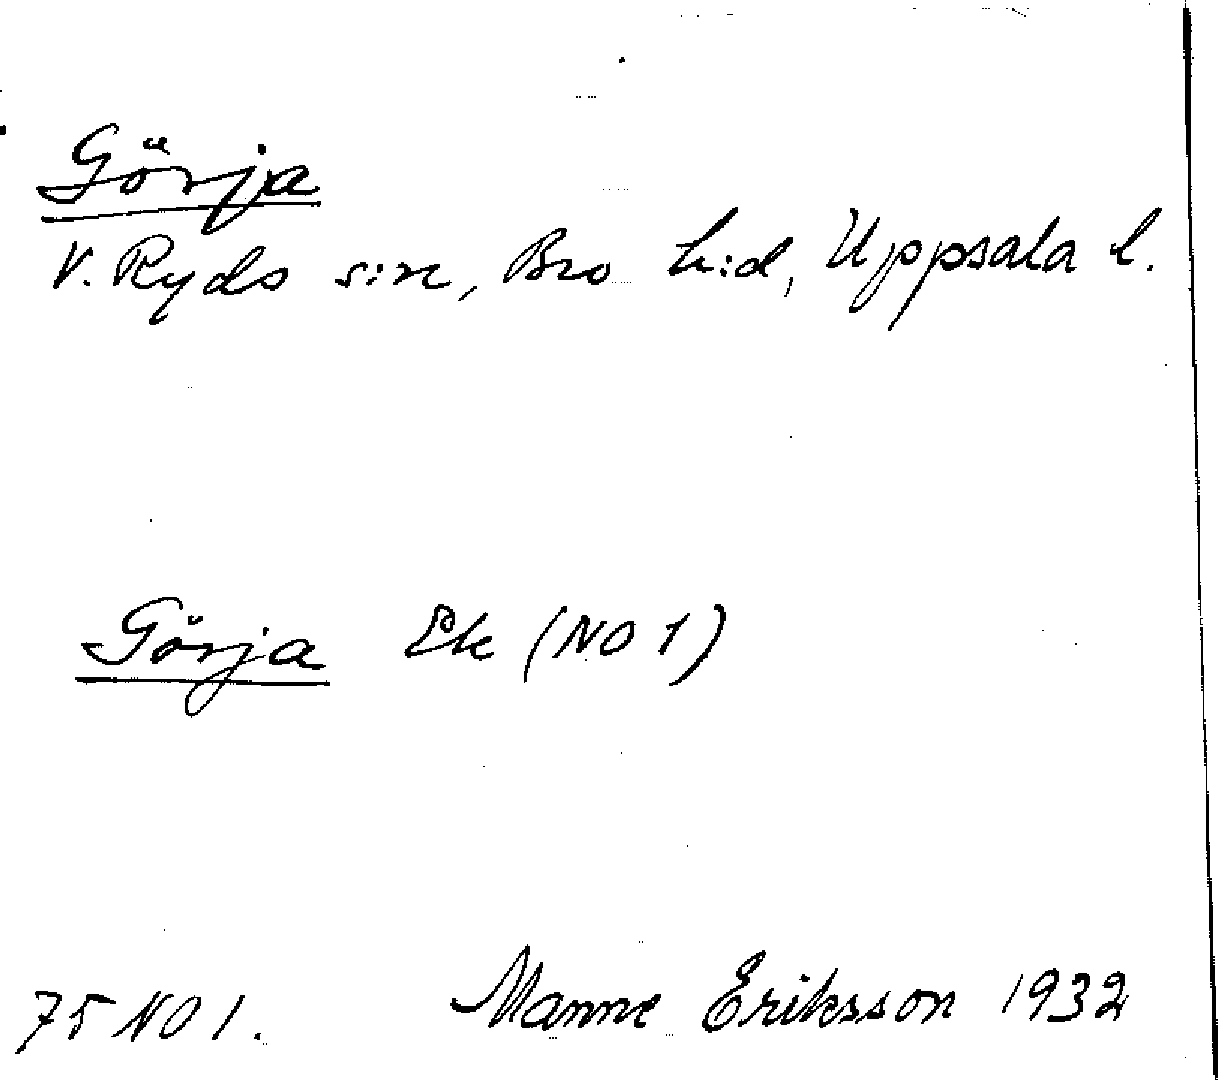 Görja
V. Ryds s:n, Bro h:d, Uppsala l.
Görja Ek (NO 1)
75 NO 1. Manne Eriksson 1932